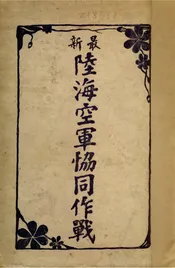 最新
陸海空軍恊同作戰